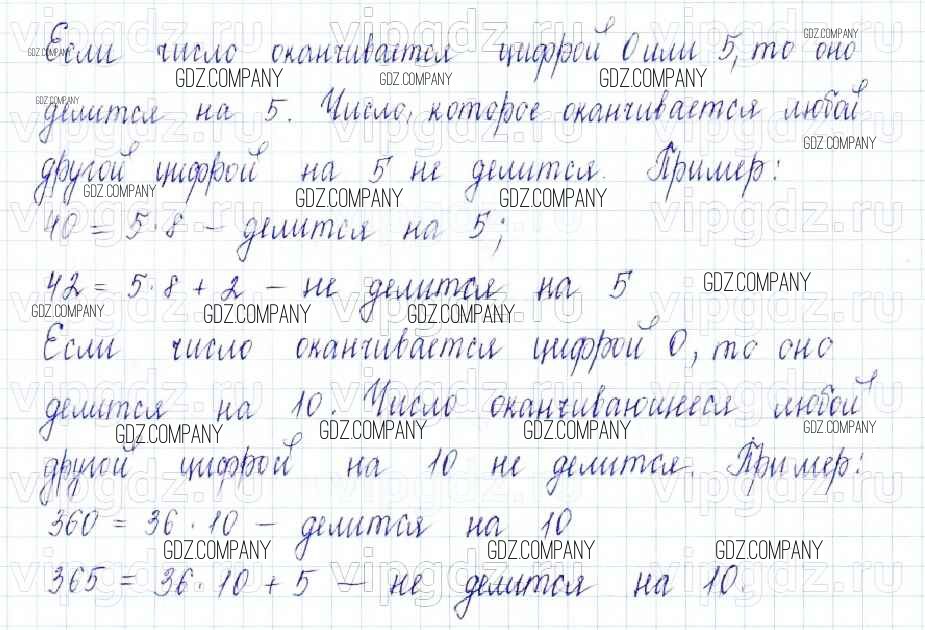 Если число оканчивается цифрой 0 или 5, то оно
делится на 5. Число, которое оканчивается любой
другой цифрой на 5 не делится. Пример:
40 = 5·8 — делится на 5;
42 = 5·8 + 2 — не делится на 5
Если число оканчивается цифрой 0, то оно
делится на 10. Число оканчивающееся любой
другой цифрой на 10 не делится. Пример:
360 = 36·10 — делится на 10
365 = 36·10 + 5 — не делится на 10.